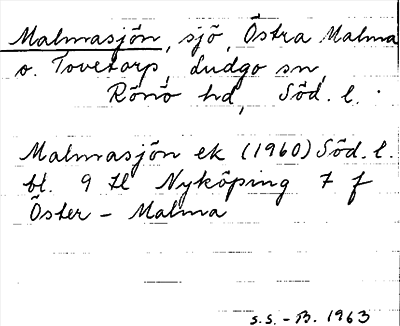 Malmasjön, sjö, Östra Malma
o. Tovetorp, Ludgo sn,
Rönö hd, Söd. l.
Malmasjön ek (1960) Söd. l.
bl. 9 H Nyköping 7 f
Öster - Malma
S.S. - B. 1963